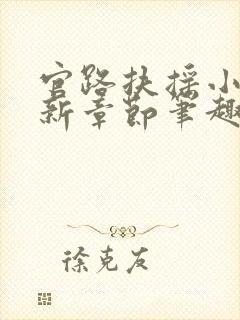 官路扶摇小
新章节笔趣
徐克友